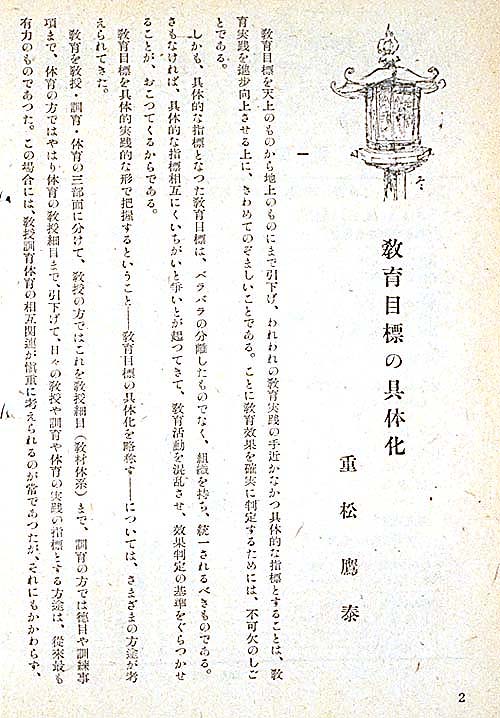 教育目標の具体化
重松鷹泰
一
教育目標を天上のものから地上のものにまで引下げ、われわれの教育実践の手近かなかつ具体的な指標とすることは、教
育実践を進歩向上させる上に、きわめてのぞましいことである。ことに教育効果を確実に判定するためには、不可欠のしご
とである。
しかも、具体的な指標となつた教育目標は、バラバラの分離したものでなく、組織を持ち、統一されるべきものである。
さもなければ、具体的な指標相互にくいちがいと爭いとが起つてきて、教育活動を混乱させ、効果判定の基準をぐらつかせ
ることが、おこつてくるからである。
教育目標を具体的実践的な形で把握するということ――教育目標の具体化を略称す――については、さまざまの方途が考
えられてきた。
教育を教授・訓育・体育の三部面に分けて、教授の方ではこれを教授細目(教材体系)まで、訓育の方では徳目や訓練事
項まで、体育の方ではやはり体育の教授細目まで、引下げて、日々の教授や訓育や体育の実践の指標とする方途は、從來最も
有力のものであつた。この場合には、教授訓育体育の相互関連が愼重に考えられるのが常であつたが、それにもかかわらず、
2